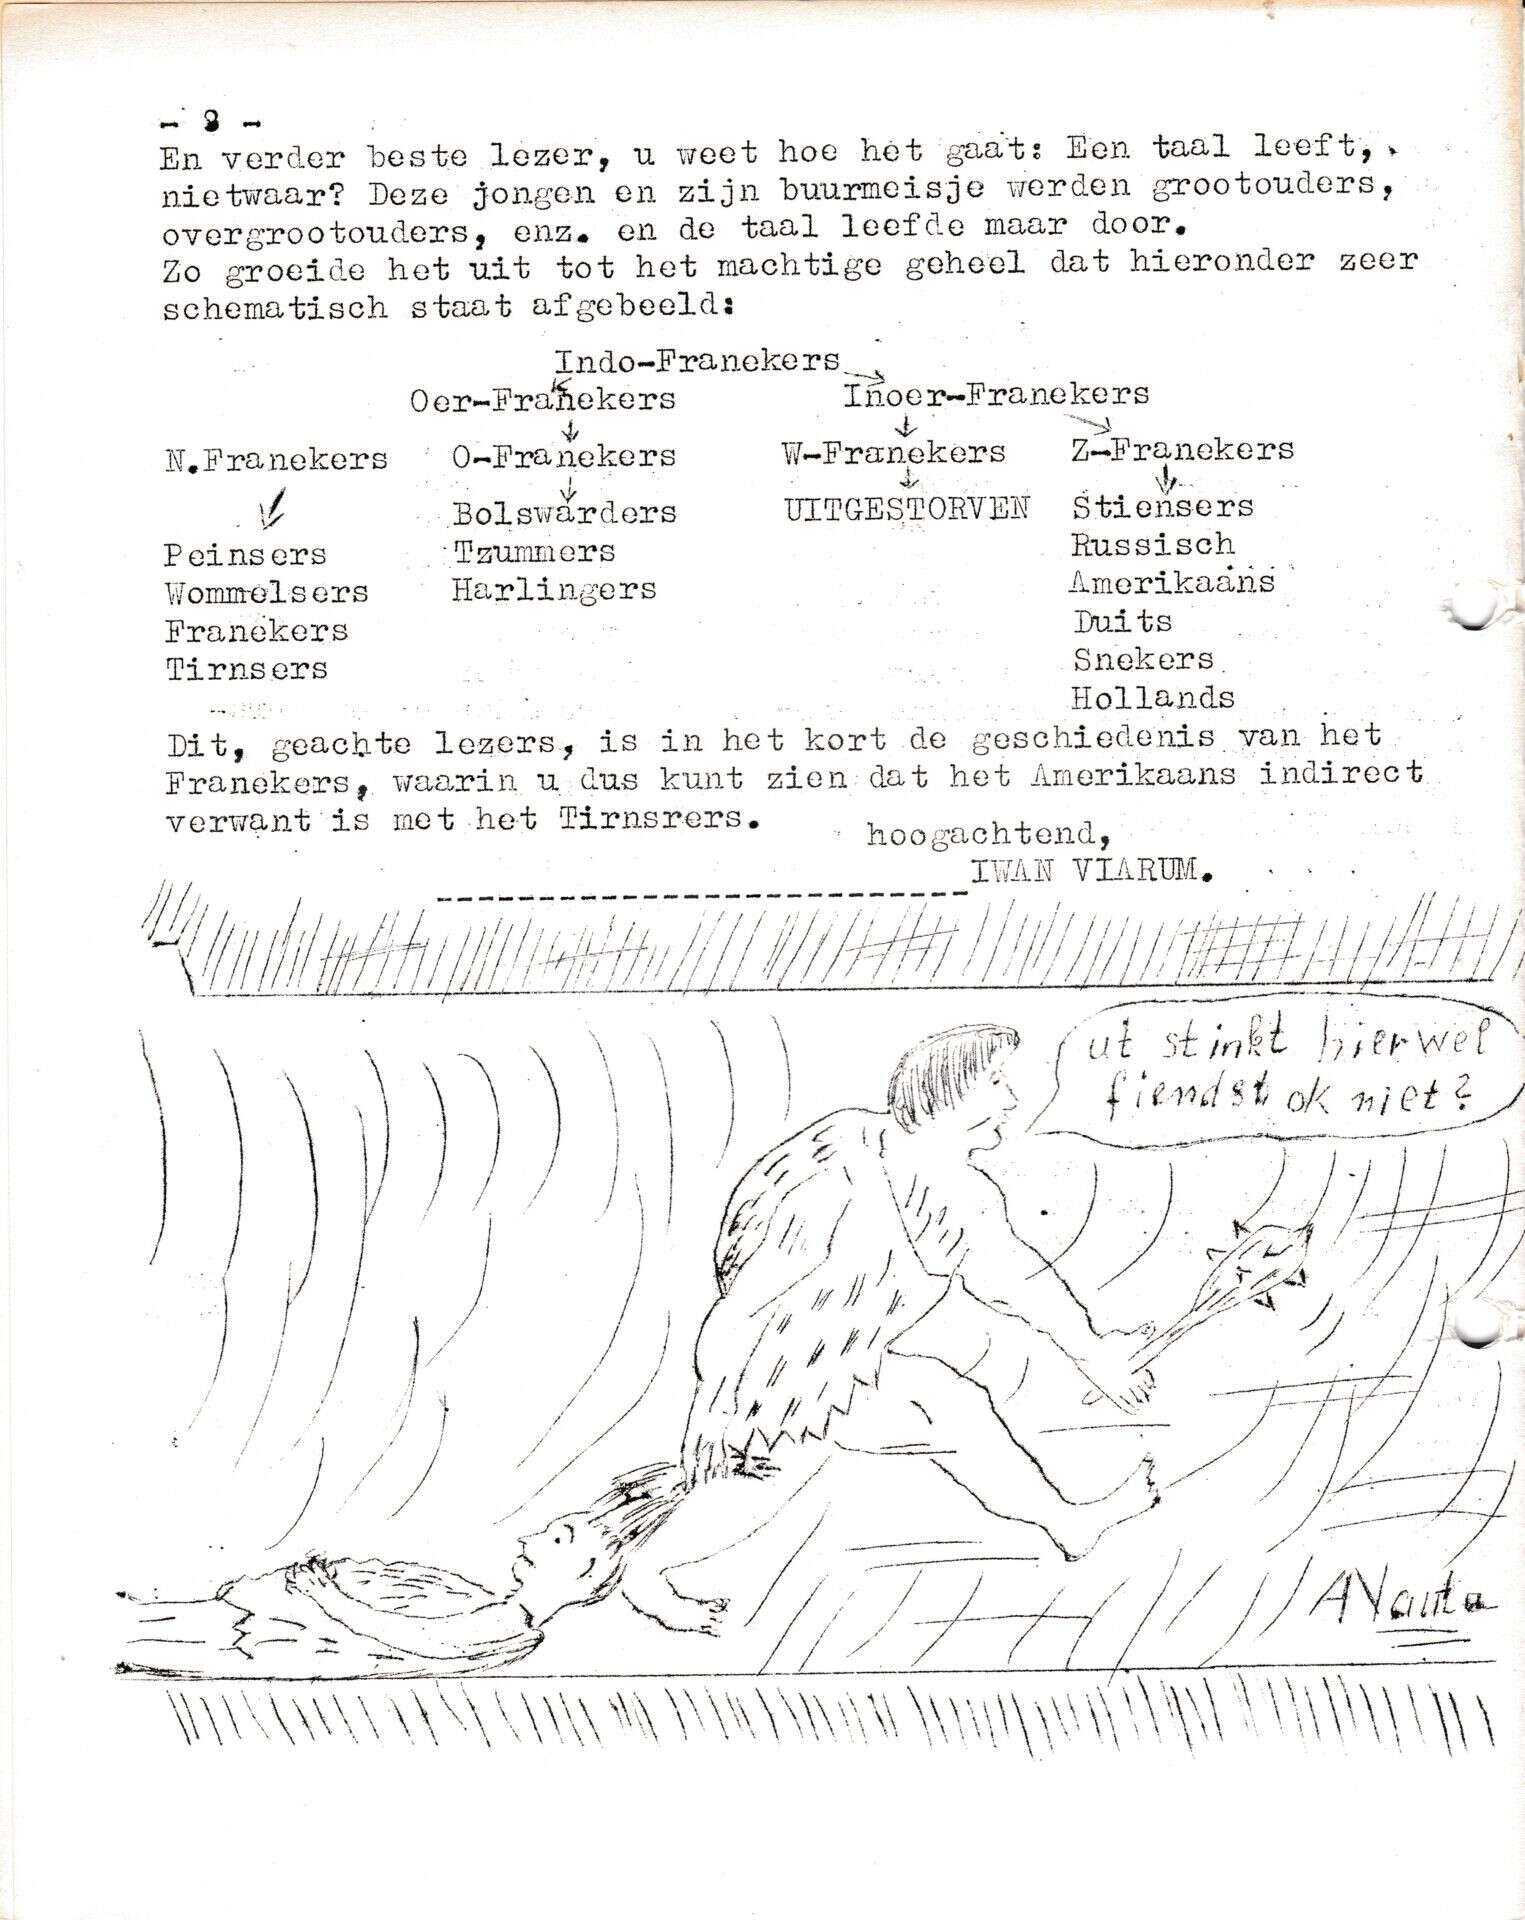 - 8 -
En verder beste lezer, u weet hoe het gaat: Een taal leeft,
nietwaar? Deze jongen en zijn buurmeisje werden grootouders,
overgrootouders, enz. en de taal leefde maar door.
Zo groeide het uit tot het machtige geheel dat hieronder zeer
schematisch staat afgebeeld:
Indo-Franekers
Oer-Franekers Inoer-Franekers
N.Franekers O-Franekers W-Franekers Z-Franekers
Bolswarders UITGESTORVEN Stiensers
Peinsers Tzummers Russisch
Wommelsers Harlingers Amerikaans
Franekers Duits
Tirnsers Snekers
Hollands
Dit, geachte lezers, is in het kort de geschiedenis van het
Franekers, waarin u dus kunt zien dat het Amerikaans indirect
verwant is met het Tirnsrers.
hoogachtend,
IWAN VIARUM.
ut stinkt hier wel
fiendst ok niet?
A Nauta